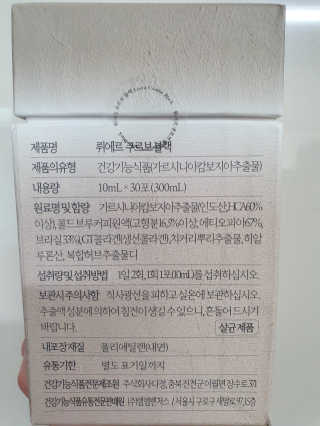 제품명 뤼에르 쿠르보 블랙
제품의유형 건강기능식품(가르시니아캄보지아추출물)
내용량 10mL × 30포 (300mL)
원료명 및 함량 가르시니아캄보지아추출물(인도산, HCA60%
이상), 콜드브루커피원액(고형분16.3%이상, 에티오피아67%,
브라질33%), GT콜라겐(생선콜라겐), 치커리뿌리추출물, 히알
루론산, 복합허브추출물디
섭취량 및 섭취방법 1일 2회, 1회 1포(10mL)를 섭취하십시오.
보관시 주의사항 직사광선을 피하고 실온에 보관하십시오.
추출액 성분에 의하여 침전이 생길 수 있으니, 흔들어 드시기
바랍니다. 살균제품
내포장재질 폴리에틸렌(내면)
유통기한 별도 표기일까지
건강기능식품전문제조원 주식회사다정, 충북 진천군 이월면 장수로
건강기능식품유통전문판매원 / 서울시 구로구 새말로 97, 15층